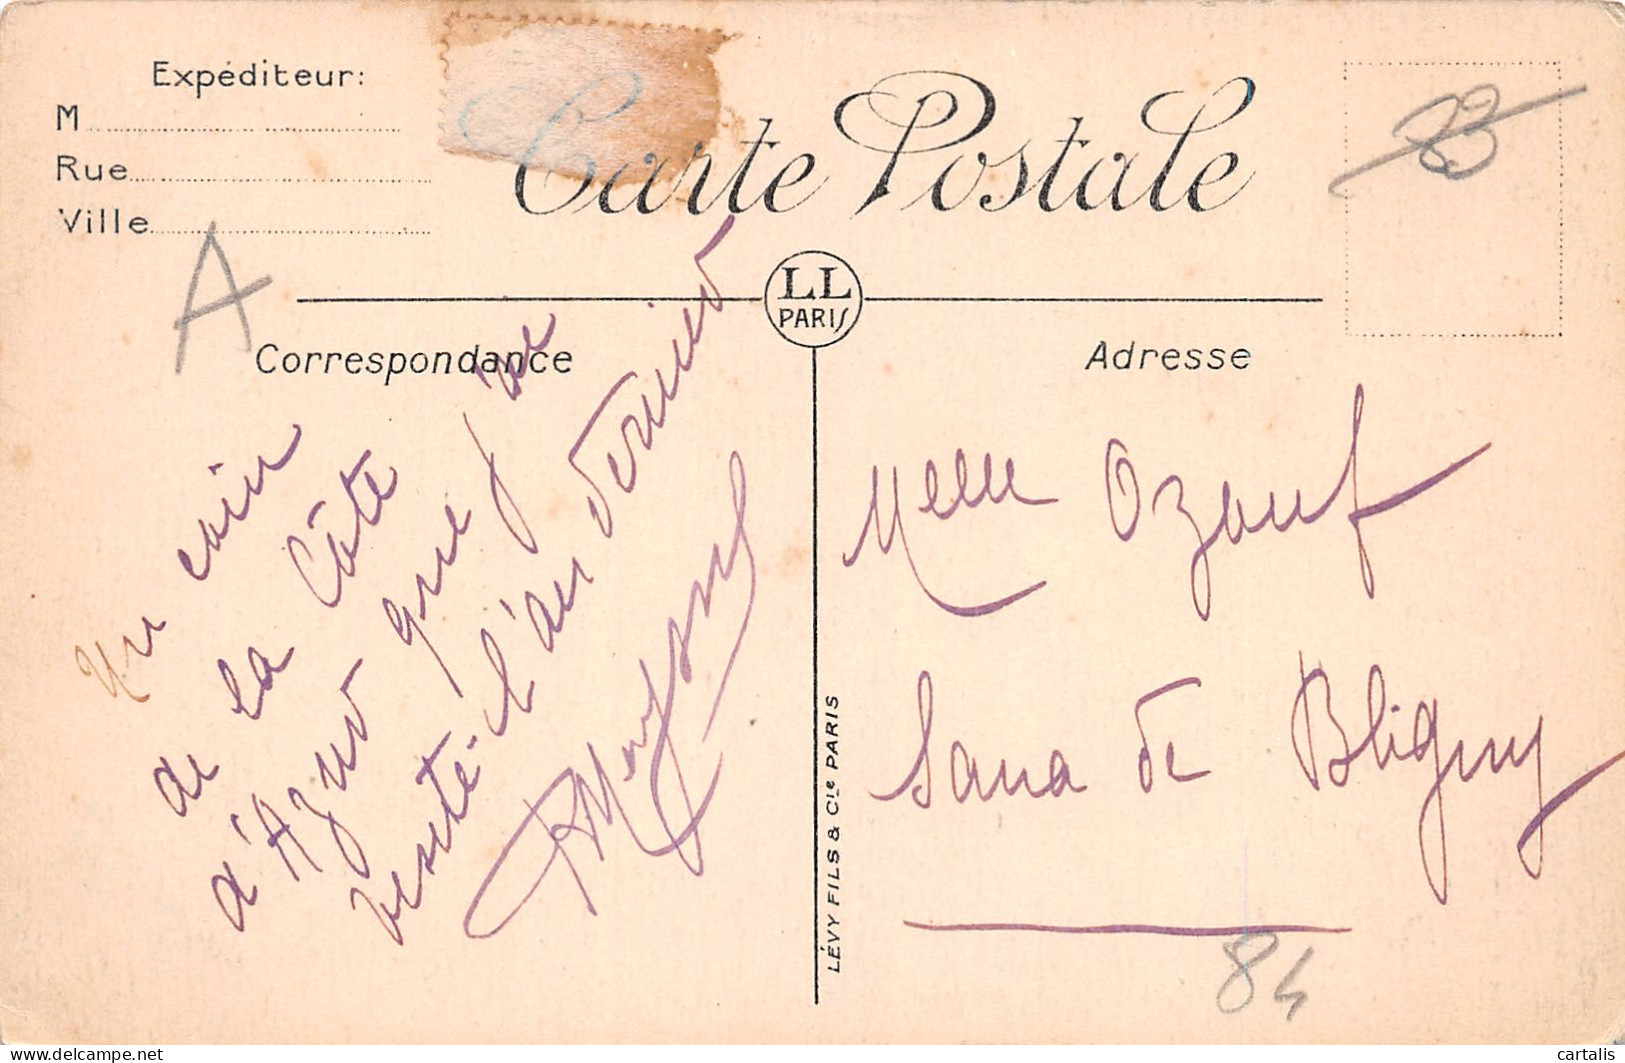 Expéditeur:
M
Rue
Ville
Carte Postale
83
A
LL
PARIS
Correspondance
Adresse
Un coin
de la Côte
d'Azur que j'ai
visité l'an dernier
Melle Ozouf
Sana de Bligny
LÉVY FILS & Cie PARIS
84
cartalis